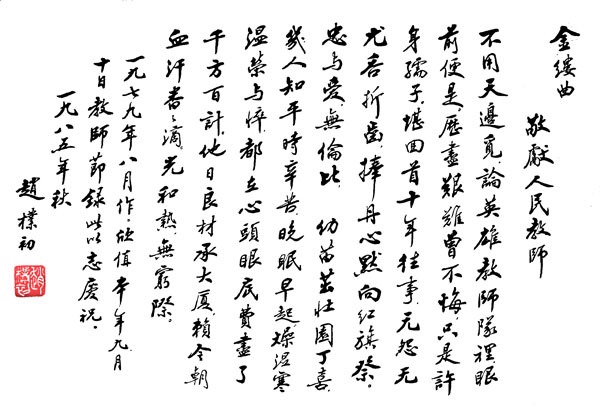 金縷曲
敬獻人民教師
不用天邊覓論英雄教師隊裡眼
前便是歷盡艱難曾不悔只是許
身孺子堪回首十年往事无怨无
尤吞折齒捧丹心默向红旗祭。
忠与愛無倫比 幼苗茁壮園丁喜
幾人知平時辛苦晚眠早起燥湿寒
温榮与悴都在心頭眼底費盡了
千方百計他日良材承大厦賴今朝
血汗番々滴光和熱無窮際。
一九七九年八月作。欣值本年九月
十日教師節録此以志慶祝。
一九八五年秋
趙樸初